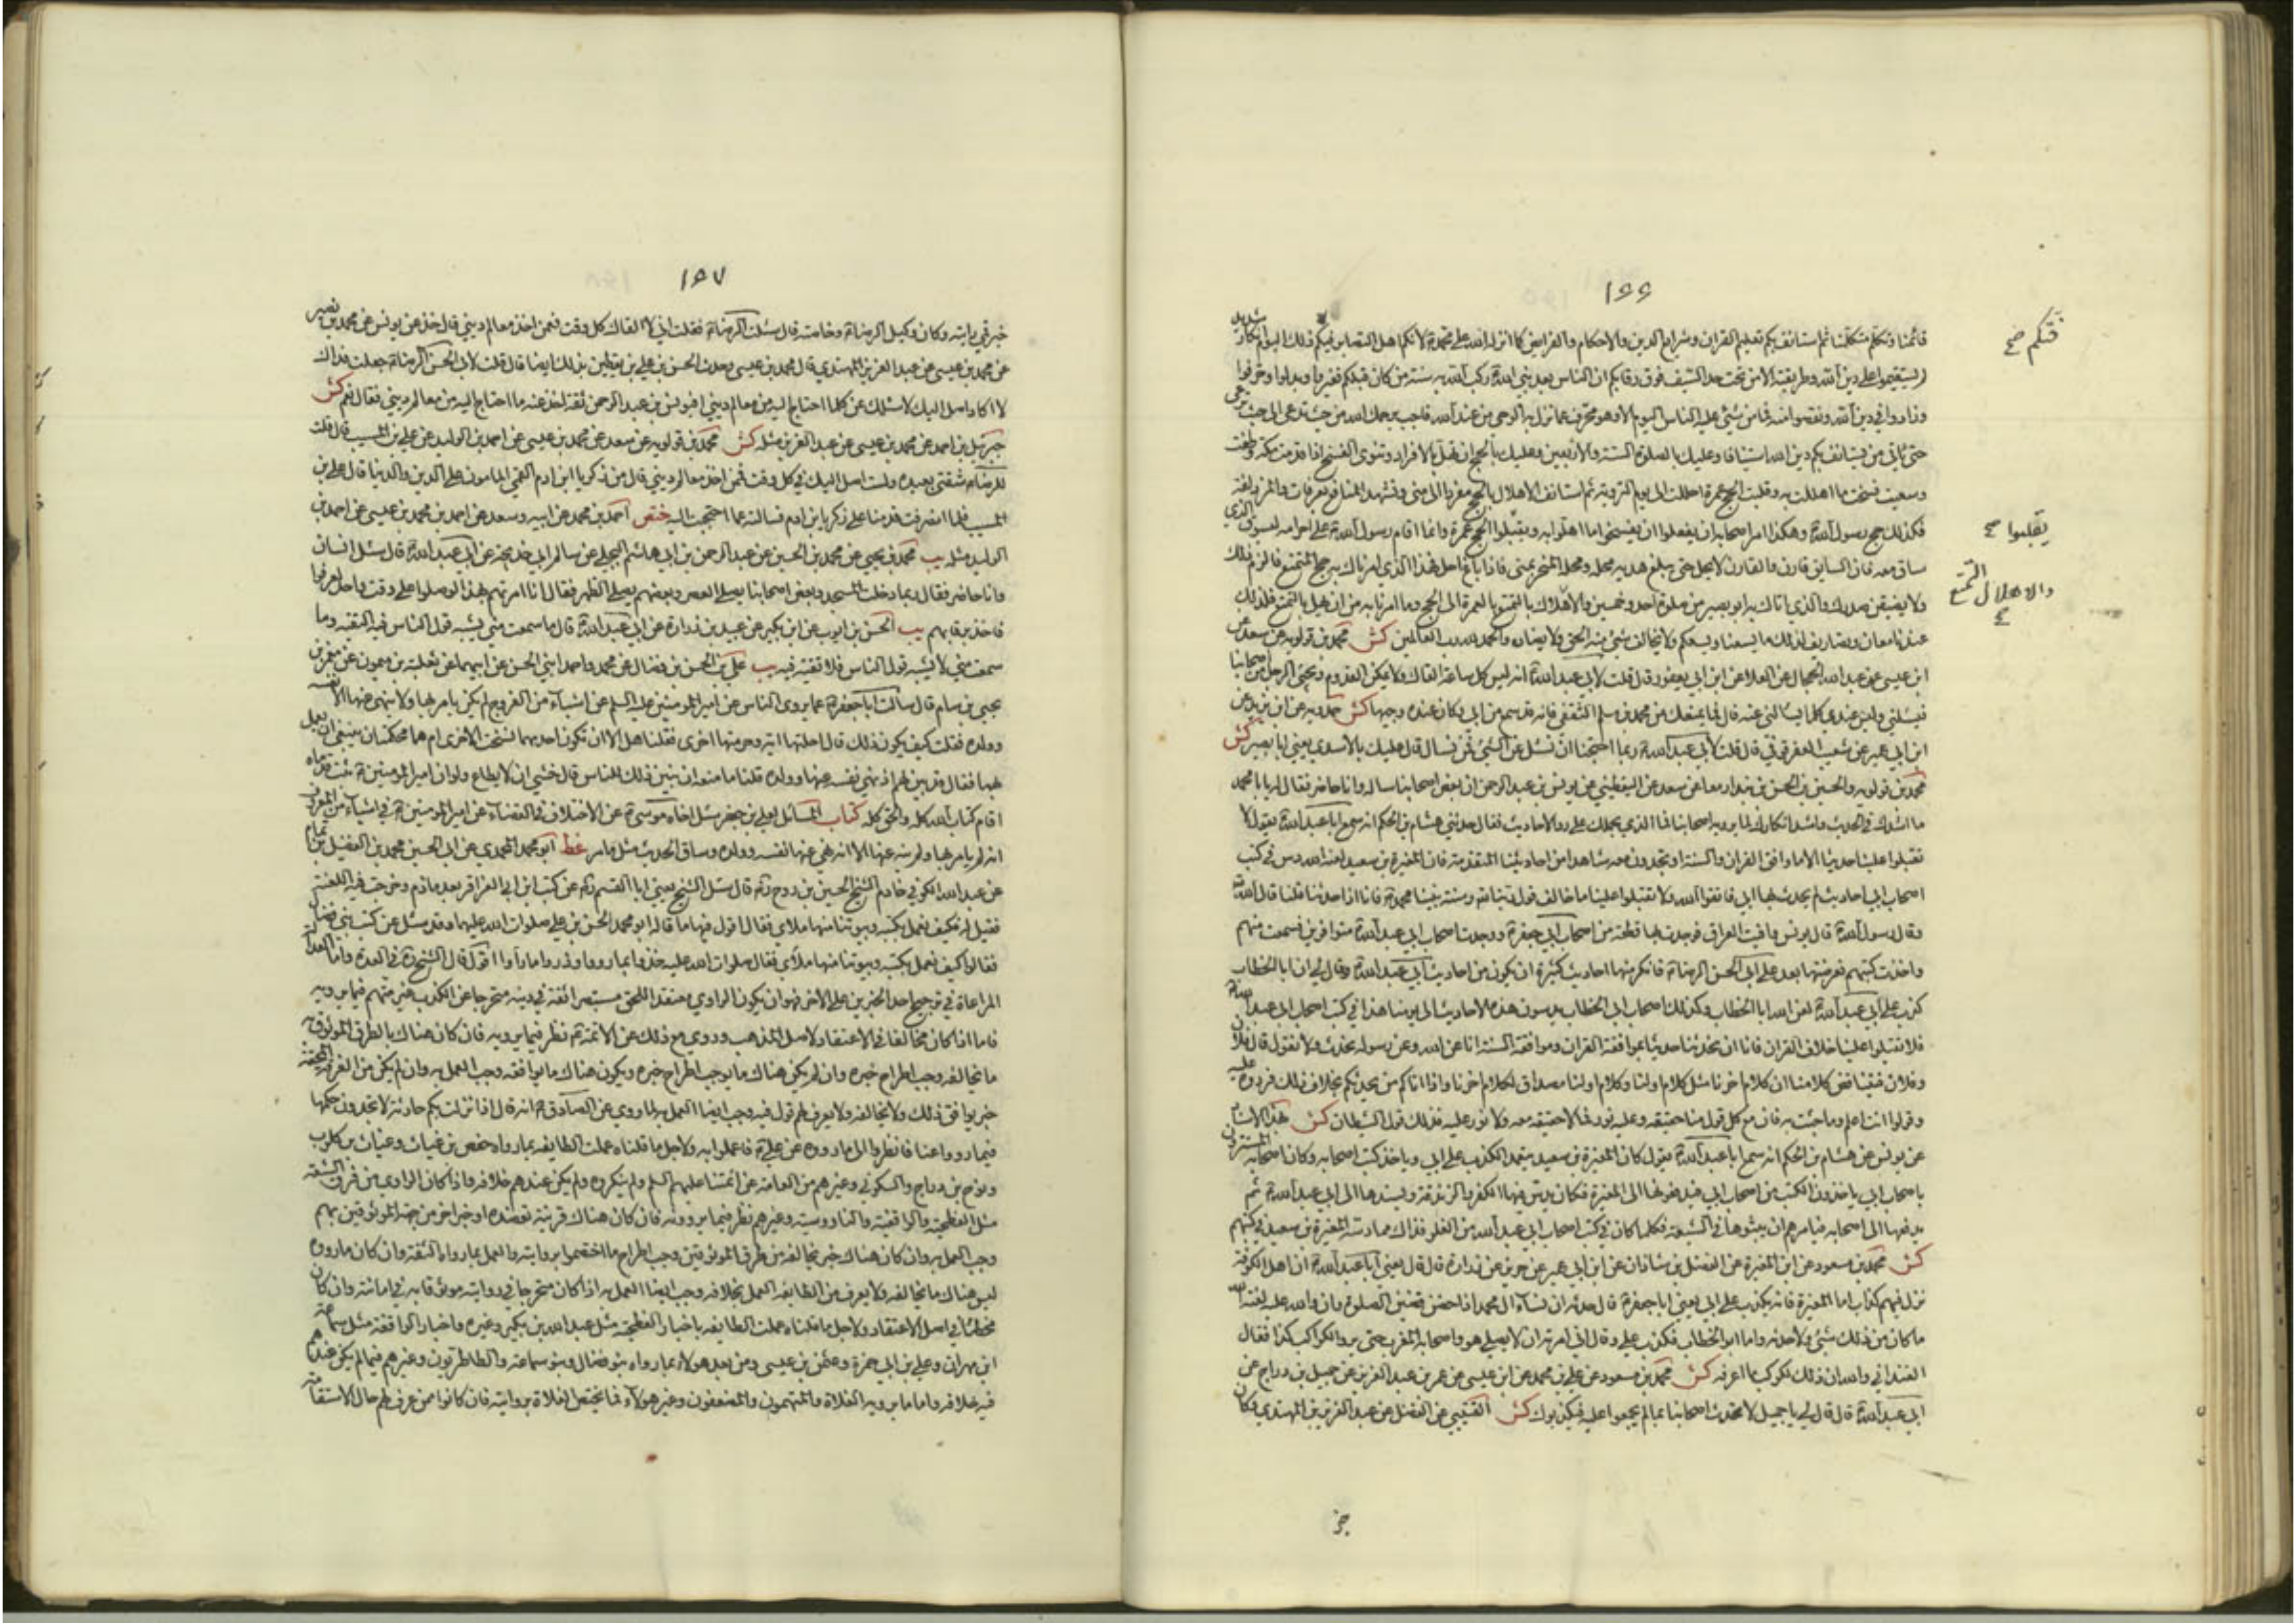 ١٦٦
قائمنا وتكلم متكلمنا ثم استأنف بكم تعليم القران وشرايع الدين والاحكام والفرايض كما انزله الله على محمد لانكم اهل التصابر فيكم ذلك اليوم انكار شديد
لم تستقيموا على دين الله وطريقته الا من تحت حد السيف فوق رقابكم ان الناس بعد نبي الله ركب الله به سنة من كان قبلكم فغيروا وبدلوا وحرفوا
وزادوا في دين الله ونقصوا منه فما من شيء عليه الناس اليوم الا وهو محرف عما نزل به الوحي من عند الله فاجب يرحمك الله من حيث تدعى الى حيث ترعى
حتى ياتي من يستانف بكم دين الله استينافا وعليك بالصلوة الستة والاربعين وعليك بالحج ان تهل بالافراد وتنوي الفسخ اذا قدمت مكة وطفت
وسعيت فسخت ما اهللت به وقلبت الحج عمرة احللت الى يوم التروية ثم استانف الاهلال بالحج مفردا الى منى وتشهد المنافع بعرفات والمزدلفة
فكذلك حج رسول الله وهكذا امر اصحابه ان يفعلوا ان يفسخوا ما اهلوا به ويقلبوا الحج عمرة وانما اقام رسول الله على احرامه لسوق الذي
ساق معه فان السايق قارن والقارن لا يحل حتى يبلغ هديه محله ومحله المنحر بمنى فاذا بلغ احل فهذا الذي امرناك به حج المتمتع فالزم ذلك
ولا يضيقن صدرك والذي اتاك به ابو بصير من صلوة احدى وخمسين والاهلال بالتمتع بالعمرة الى الحج وما امرنا به من ان يهل بالتمتع فلذلك
عندنا معان وتصاريف لذلك ما يسعنا ويسعكم ولا يخالف شيء منه الحق ولا يضاده والحمد لله رب العالمين كش محمد بن قولويه عن سعد عن
ابن عيسى عن عبد الله الحجال عن العلا عن ابن ابي يعفور قال قلت لابي عبد الله انه ليس كل ساعة القاك ولا يمكن القدوم ويجيئ الرجل من اصحابنا
فيسئلني وليس عندي كلما يسالني عنه قال فما يمنعك من محمد بن مسلم الثقفي فانه قد سمع من ابي وكان عنده وجيها كش حمدويه عن ابن يزيد عن
ابن ابي عمير عن شعيب العقرقوفي قال قلت لابي عبد الله ربما احتجنا ان نسئل عن الشيء فمن نسال قال عليك بالاسدي يعني ابا بصير كش
محمد بن قولويه والحسين بن الحسن بن بندار معا عن سعد عن اليقطيني عن يونس بن عبد الرحمن ان بعض اصحابنا ساله وانا حاضر فقال له يا با محمد
ما اشدك في الحديث واشد انكارك لما يرويه اصحابنا فما الذي يحملك على رد الاحاديث فقال حدثني هشام بن الحكم انه سمع ابا عبد الله يقول لا
تقبلوا علينا حديثا الا ما وافق القران والسنة او تجدون معه شاهدا من احاديثنا المتقدمة فان المغيرة بن سعيد لعنه الله دس في كتب
اصحاب ابي احاديث لم يحدث بها ابي فاتقوا الله ولا تقبلوا علينا ما خالف قول ربنا وسنة نبينا محمد فانا اذا حدثنا قلنا قال الله
وقال رسول الله قال يونس وافيت العراق فوجدت بها قطعة من اصحاب ابي جعفر ووجدت اصحاب ابي عبد الله متوافرين فسمعت منهم
واخذت كتبهم فعرضتها بعد على ابي الحسن الرضا فانكر منها احاديث كثيرة ان يكون من احاديث ابي عبد الله وقال لي ان ابا الخطاب
كذب على ابي عبد الله لعن الله ابا الخطاب وكذلك اصحاب ابي الخطاب يدسون هذه الاحاديث الى يومنا هذا في كتب اصحاب ابي عبد الله
فلا تقبلوا علينا خلاف القران فانا ان تحدثنا حدثنا بموافقة القران وموافقة السنة انا عن الله وعن رسوله نحدث ولا نقول قال فلان
وفلان فيتناقض كلامنا ان كلام اخرنا مثل كلام اولنا وكلام اولنا مصداق لكلام اخرنا واذا اتاكم من يحدثكم بخلاف ذلك فردوه عليه
وقولوا انت اعلم وما جئت به فان مع كل قول منا حقيقة وعليه نور فما لا حقيقة معه ولا نور عليه فذلك قول الشيطان كش بهذا الاسناد
عن يونس عن هشام بن الحكم انه سمع ابا عبد الله يقول كان المغيرة بن سعيد يتعمد الكذب على ابي وياخذ كتب اصحابه وكان اصحابه المستترون
باصحاب ابي ياخذون الكتب من اصحاب ابي فيدفعونها الى المغيرة فكان يدس فيها الكفر والزندقة ويسندها الى ابي عبد الله ثم
يدفعها الى اصحابه فيامرهم ان يبثوها في الشيعة فكلما كان في كتب اصحاب ابي عبد الله من الغلو فذاك مما دسه المغيرة بن سعيد في كتبهم
كش محمد بن مسعود عن ابن المغيرة عن الفضل بن شاذان عن ابن ابي عمير عن حريز عن زرارة قال قال يعني ابا عبد الله ان اهل الكوفة
نزل فيهم كذاب اما المغيرة فانه يكذب على ابي يعني ابا جعفر قال حدثه ان نساء ال محمد اذا حضن قضين الصلوة وان والله عليه لعنة الله
ما كان من ذلك شيء ولا حدثه واما ابو الخطاب فكذب علي وقال اني امرته ان لا يصلي هو واصحابه المغرب حتى يروا كوكب كذا فقال
القنداني والله ان ذلك لكوكب ما اعرفه كش محمد بن مسعود عن علي بن محمد عن ابن عيسى عن عمر بن عبد العزيز عن جميل بن دراج عن
ابي عبد الله قال قال لي يا جميل لا تحدث اصحابنا بما لم يجمعوا عليه فيكذبوك كش القتيبي عن الفضل عن عبد العزيز بن المهتدي وكان
فتنكم صح
يقلبوا صح
والاهلال التمتع
١٦٧
خير قمي رايته وكان وكيل الرضا وخاصته قال سئلت الرضا فقلت اني لا القاك كل وقت فعمن اخذ معالم ديني قال خذ عن يونس كش محمد بن نصير
عن محمد بن عيسى عن عبد العزيز المهتدي قال محمد بن عيسى وحدث الحسن بن علي بن يقطين بذلك ايضا قال قلت لابي الحسن الرضا جعلت فداك
لا اكاد اصل اليك لاسئلك عن كلما احتاج اليه من معالم ديني افيونس بن عبد الرحمن ثقة اخذ عنه ما احتاج اليه من معالم ديني فقال نعم كش
جبرئيل بن احمد عن محمد بن عيسى عن عبد العزيز مثله كش محمد بن قولويه عن سعد عن محمد بن عيسى عن احمد بن الوليد عن علي بن المسيب قال قلت
للرضا شقتي بعيدة ولست اصل اليك في كل وقت فممن اخذ معالم ديني قال من زكريا ابن ادم القمي المامون على الدين والدنيا قال علي بن
المسيب فلما انصرفت قدمنا على زكريا بن ادم فسالته عما احتجت اليه ختص احمد بن محمد عن ابيه وسعد عن احمد بن محمد بن عيسى عن احمد بن
الوليد مثله يب محمد بن يحيى عن محمد بن الحسين عن عبد الرحمن بن ابي هاشم البجلي عن سالم ابي خديجة عن ابي عبد الله قال سئل انسان
وانا حاضر فقال ربما دخلت المسجد وبعض اصحابنا يصلي العصر وبعضهم يصلي الظهر فقال انا امرتهم بهذا لو صلوا على وقت واحد لعرفوا
فاخذ برقابهم يب الحسن بن ايوب عن ابن بكير عن عبيد بن زرارة عن ابي عبد الله قال ما سمعت مني يشبه قول الناس فيه التقية وما
سمعت مني لا يشبه قول الناس فلا تقية فيه يب علي بن الحسن بن فضال عن محمد واحمد ابني الحسن عن ابيهما عن ثعلبة بن ميمون عن معمر بن
يحيى بن سام قال سالت ابا جعفر عما يروى الناس عن امير المؤمنين عليه السلم عن اشياء من الفروج لم يكن يامر بها ولا ينهى عنها الا نفسه
وولده فقلت كيف يكون ذلك قال احلتها اية وحرمتها اخرى فقلنا هل الا ان تكون احديهما نسخت الاخرى ام هما محكمتان ينبغي ان يعمل
بهما فقال قد بين لهم اذ نهي نفسه عنها وولده قلنا ما منعه ان يبين ذلك للناس قال خشي ان لا يطاع ولو ان امير المؤمنين ثبتت قدماه
اقام كتاب الله كله والحق كله كتاب المسائل لعلي بن جعفر سئل اخاه موسى عن الاختلاف في القضاء عن امير المؤمنين في اشياء من المعروف
انه لم يامر بها ولم ينه عنها الا انه نهى عنها نفسه وولده وساق الحديث مثل ما مر غط ابو محمد المحمدي عن ابي الحسين محمد بن الفضيل بن تمام
عن عبد الله الكوفي خادم الشيخ الحسين بن روح قال سئل الشيخ يعني ابا القسم عن كتب ابن ابي العزاقر بعد ما ذم وخرجت فيه اللعنة
فقيل له فكيف نعمل بكتبه وبيوتنا منها ملاي فقال اقول فيها ما قاله ابو محمد الحسن بن علي صلوات الله عليهما وقد سئل عن كتب بني فضال
فقالوا كيف نعمل بكتبه وبيوتنا منها ملآى فقال صلوات الله عليه خذوا بما رووا وذروا ما رأوا اقول قال الشيخ في العدة واما العدالة
المراعاة في ترجيح احد الخبرين على الاخر فهو ان يكون الراوي معتقدا للحق مستبصرا ثقة في دينه متحرجا عن الكذب غير متهم فيما يرويه
فاما اذا كان مخالفا في الاعتقاد لاصل المذهب وروي مع ذلك عن الائمة نظر فيما يرويه فان كان هناك بالطرق الموثوقة
ما يخالفه وجب اطراح خبره وان لم يكن هناك ما يوجب اطراح خبره ويكون هناك ما يوافقه وجب العمل به وان لم يكن من الفرقة المحقة
خبر يوافق ذلك ولا يخالفه ولا يعرف لهم قول فيه وجب ايضا العمل به لما روي عن الصادق انه قال اذا نزلت بكم حادثة لا تجدون حكمها
فيما رووا عنا فانظروا الى ما رووه عن علي فاعملوا به ولاجل ما قلناه عملت الطايفة بما رواه حفص بن غياث وغياث بن كلوب
ونوح بن دراج والسكوني وغيرهم من العامة عن ائمتنا عليهم السلم ولم ينكروه ولم يكن عندهم خلافه واذا كان الراوي من فرق الشيعة
مثل الفطحية والواقفية والناووسية وغيرهم نظر فيما يروونه فان كان هناك قرينة تعضده او خبر اخر من جهة الموثوقين بهم
وجب العمل به وان كان هناك خبر يخالفه من طرق الموثوقين وجب اطراح ما اختصوا بروايته والعمل بما رواه الثقة وان كان ما رووه
ليس هناك ما يخالفه ولا يعرف من الطايفة العمل بخلافه وجب ايضا العمل به اذا كان متحرجا في روايته موثوقا به في امانته وان كان
مخطئا في اصل الاعتقاد ولاجل ما قلناه عملت الطايفة باخبار الفطحية مثل عبد الله بن بكير وغيره واخبار الواقفة مثل سماعة
ابن مهران وعلي بن ابي حمزة وعثمن بن عيسى ومن بعد هولاء بما رواه بنو فضال وبنو سماعة والطاطريون وغيرهم فيما لم يكن عندهم
فيه خلافه واما ما يرويه الغلاة والمتهمون والمضعفون وغير هولاء فما يختص الغلاة بروايته فان كانوا ممن عرف لهم حال الاستقامة